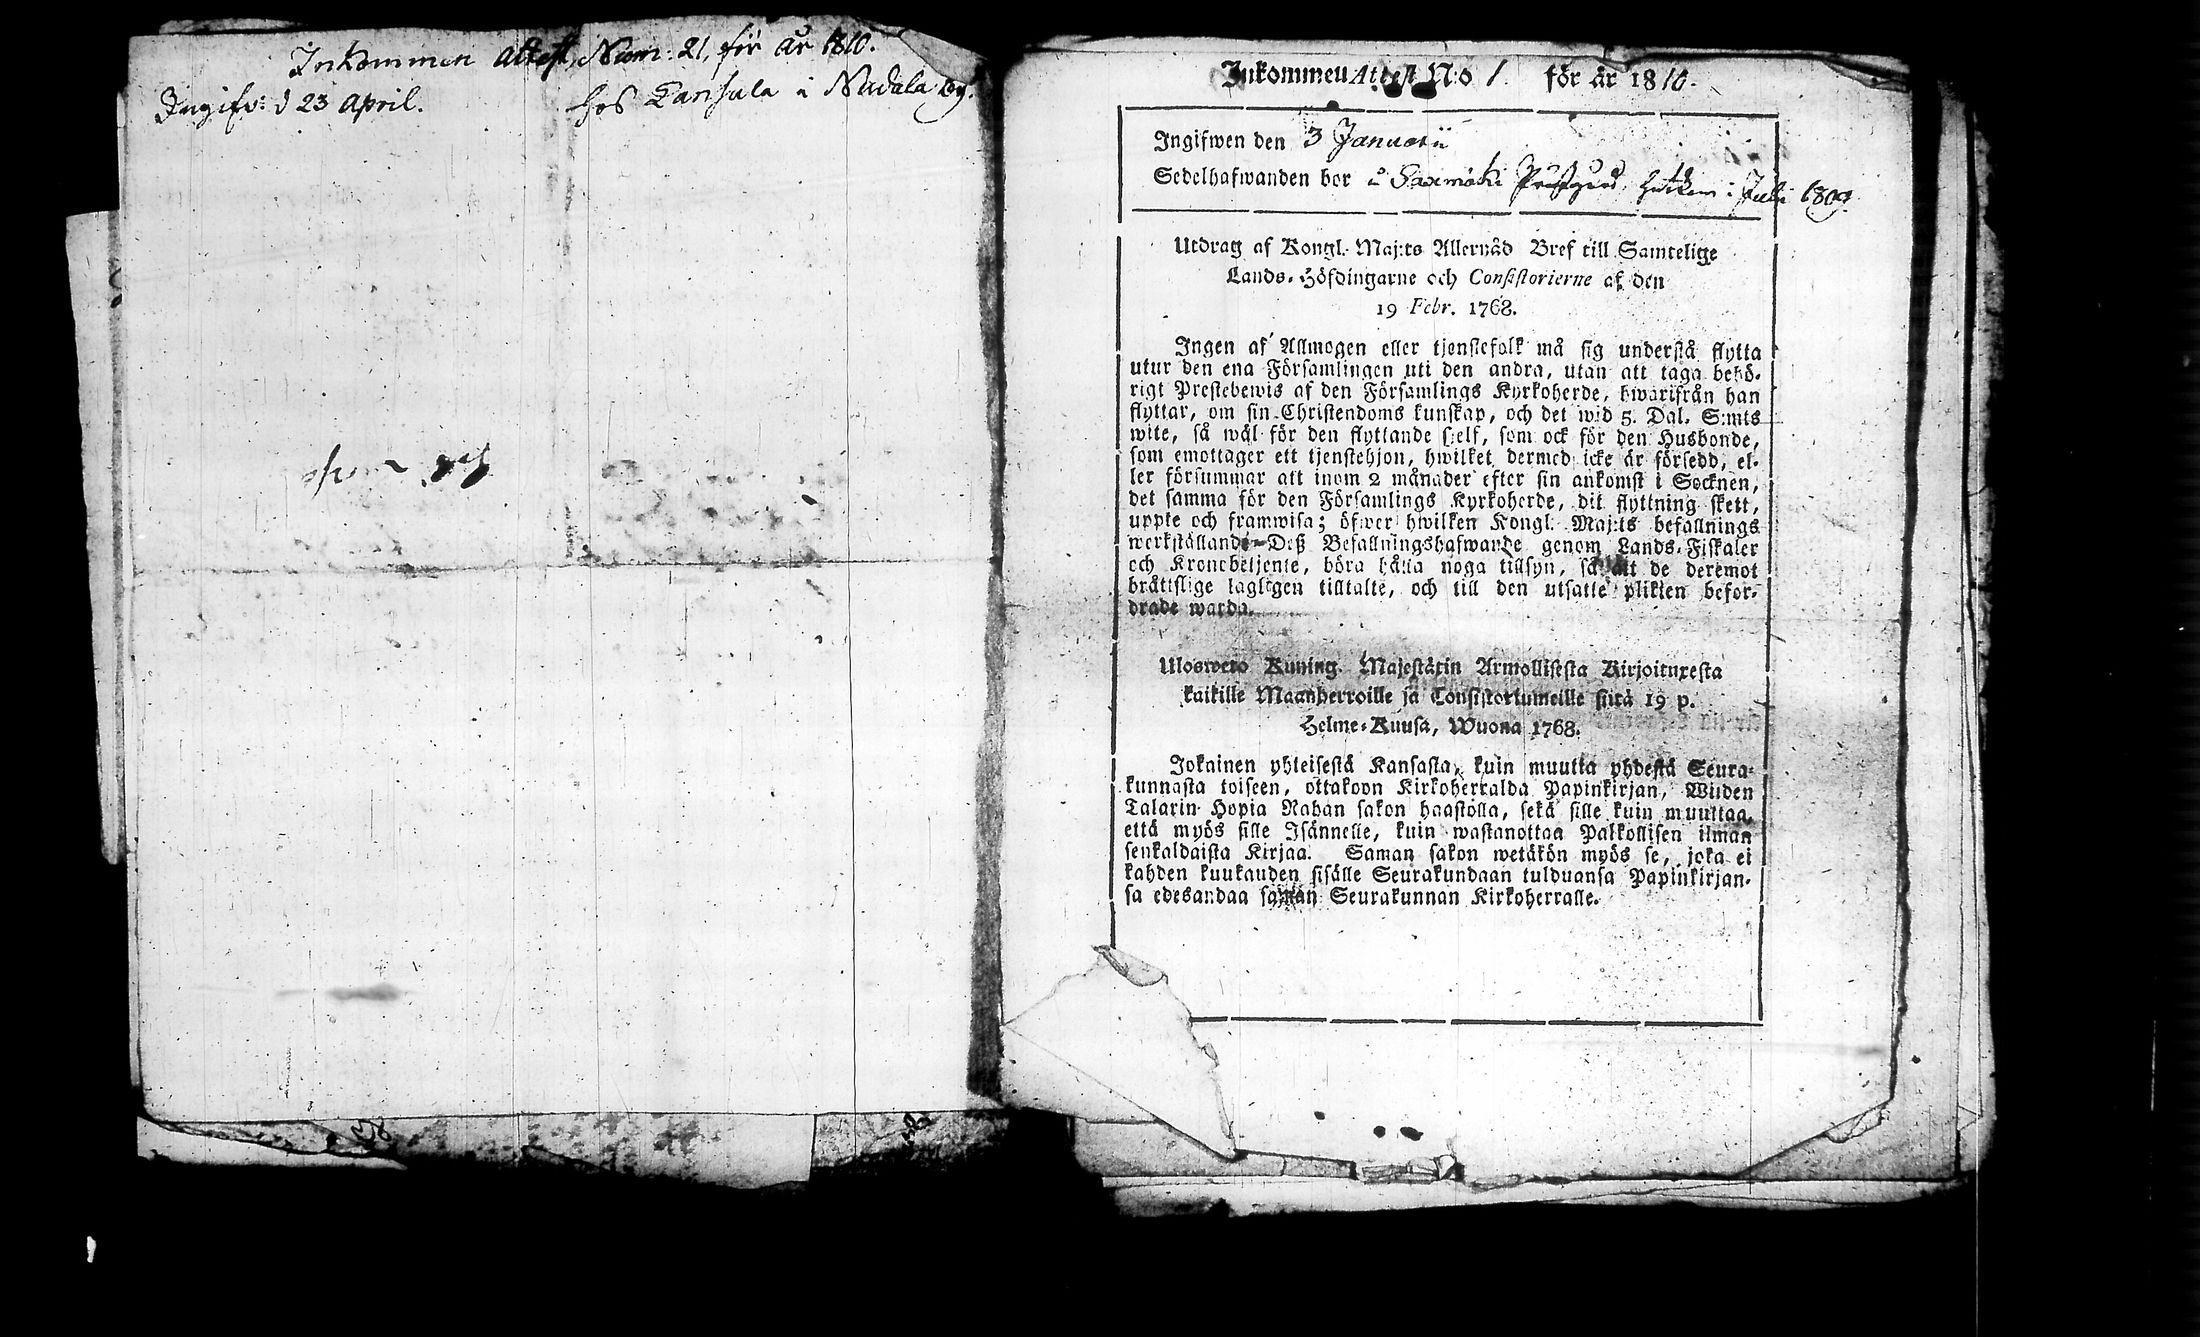 Inkommen Attest, Num: 21, för år 1810.
Ingifv: d 23 April.
hos Lansula i Nadala by.
Inkommen Attest N:o 1. för år 1810.
Ingifwen den 3 Januarii
Sedelhafwanden bor å Saxmäki Prästgård, i Juli 1809.
Utdrag af Kongl. Maj:ts Allernåd Bref till Samtelige
Lands-Höfdingarne och Consistorierne af den
19 Febr. 1768.
Ingen af Allmogen eller tjenstefolk må sig understå flytta
utur den ena Församlingen uti den andra, utan att taga behö-
rigt Prestebewis af den Församlings Kyrkoherde, hwarifrån han
flyttar, om sin Christendoms kunskap, och det wid 5. Dal. S:mts
wite, så wäl för den flyttande sjelf, som ock för den Husbonde,
som emottager ett tjenstehjon, hwilket dermed icke är försedd, el-
ler försummar att inom 2 månader efter sin ankomst i Socknen,
det samma för den Församlings Kyrkoherde, dit flyttning skett,
uppte och framwisa; öfwer hwilken Kongl. Maj:ts befallnings
werkställande Deß Befallningshafwande genom Lands-Fiskaler
och Kronobetjente, böra hålla noga tillsyn, så att de deremot
bråttslige lagligen tilltalte, och till den utsatte plikten befor-
drade warda.
Ulosweto Kuning. Majestätin Armollisesta Kirjoituxesta
kaikille Maanherroille ja Consistoriumeille siitä 19 p.
Helme-Kuusa, Wuona 1768.
Jokainen yhteisestä Kansasta, kuin muutta yhdestä Seura-
kunnasta toiseen, ottakoon Kirkoherralda Papinkirjan, Wiiden
Talarin Hopia Rahan sakon haastolla, sekä sille kuin muuttaa,
että myös sille Isännelle, kuin wastanottaa Palkollisen ilman
senkaldaista Kirjaa. Saman sakon wetäkön myös se, joka ei
kahden kuukauden sisälle Seurakundaan tulduansa Papinkirjan-
sa edesandaa saman Seurakunnan Kirkoherralle.